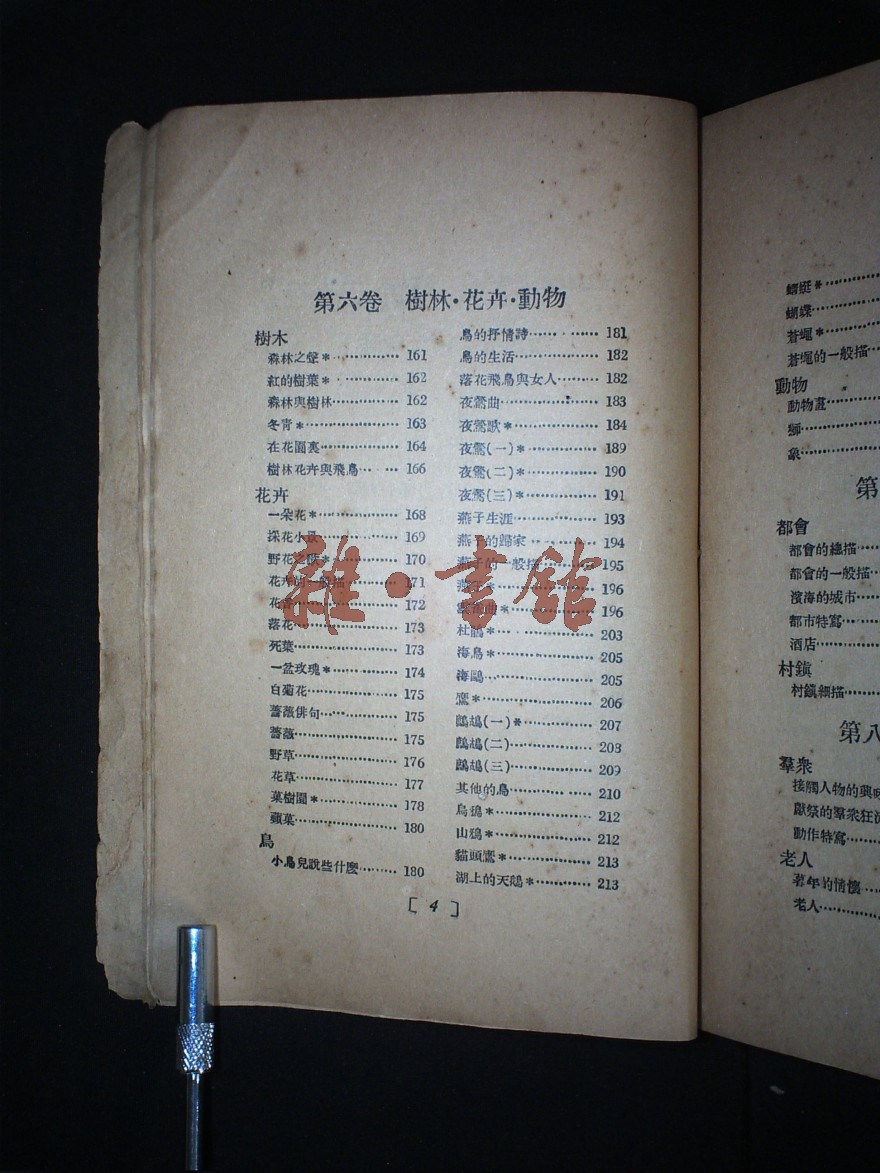 第六卷 樹林·花卉·動物
樹木
森林之聲* 161
紅的樹葉* 162
森林與樹林 162
冬青* 163
在花園裏 164
樹林花卉與飛鳥 166
花卉
一朵花* 168
採花小景 169
野花之歌* 170
花卉的一般描 171
花香 172
落花 173
死葉 173
一盆玫瑰* 174
白菊花 175
薔薇俳句 175
薔薇 175
野草 176
花草 177
菓樹園* 178
蘋菓 180
鳥
小鳥兒說些什麼 180
鳥的抒情詩 181
鳥的生活 182
落花飛鳥與女人 182
夜鶯曲 183
夜鶯歌* 184
夜鶯(一)* 189
夜鶯(二)* 190
夜鶯(三)* 191
燕子生涯 193
燕子的歸家 194
燕子的一般描 195
燕子* 196
曲* 196
杜鵑* 203
海鳥* 205
海鷗 205
鷹* 206
鷓鴣(一)* 207
鷓鴣(二) 208
鷓鴣(三) 209
其他的鳥 210
烏鴉* 212
山鴉* 212
貓頭鷹* 213
湖上的天鵝* 213
[ 4 ]
蜻蜓*
蝴蝶
蒼蠅*
蒼蠅的一般描
動物
動物畫
獅
象
第
都會
都會的總描
都會的一般描
濱海的城市
都市特寫
酒店
村鎮
村鎮細描
第八
羣衆
接觸人物的興
獻祭的羣衆狂
動作特寫
老人
暮年的情懷
老人
雜·書館